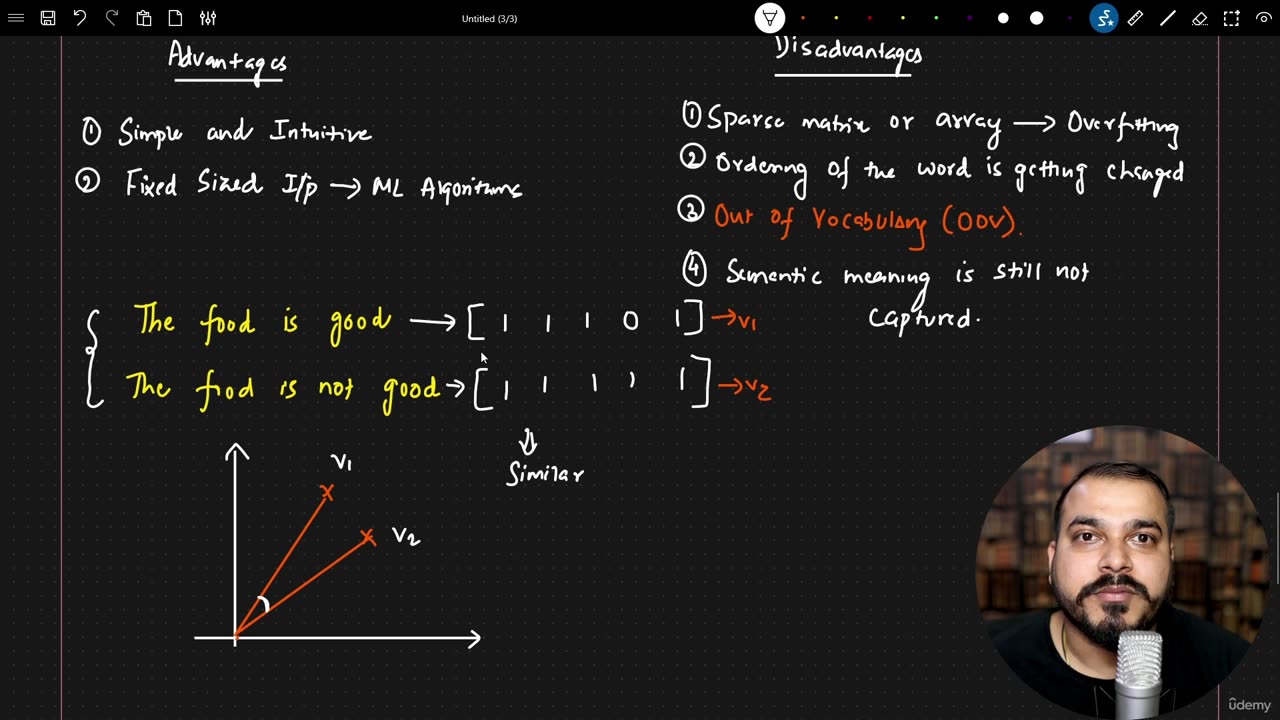 Untitled (3/3)
Advantages
① Simple and Intuitive
② Fixed Sized I/p → ML Algorithms
Disadvantages
① Sparse matrix or array → Overfitting
② Ordering of the word is getting changed
③ Out of Vocabulary (OOV).
④ Semantic meaning is still not
captured.
The food is good → [ 1 1 1 0 1 ] → v1
The food is not good → [ 1 1 1 1 1 ] → v2
⇓
Similar
v1
v2
ûdemy